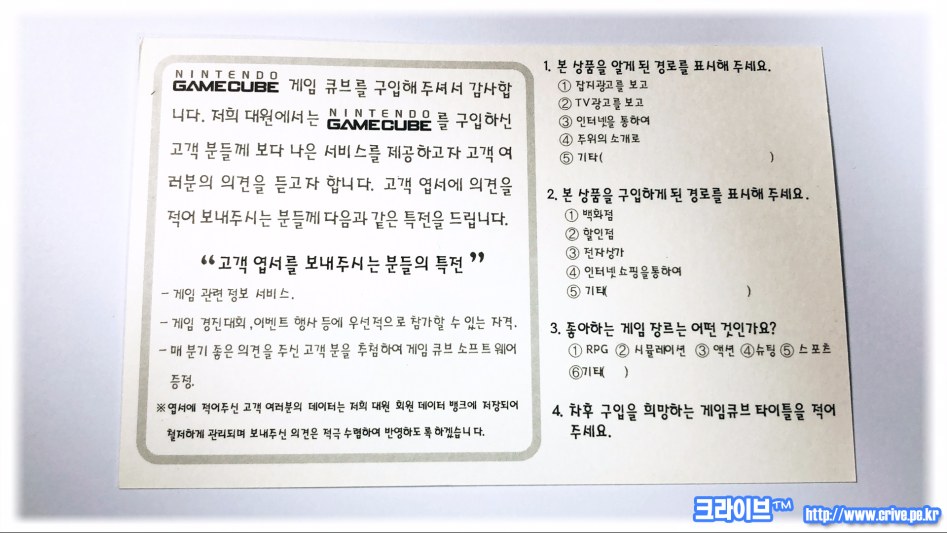 NINTENDO GAMECUBE 게임 큐브를 구입해 주셔서 감사합
니다. 저희 대원에서는 NINTENDO GAMECUBE 를 구입하신
고객 분들께 보다 나은 서비스를 제공하고자 고객 여
러분의 의견을 듣고자 합니다. 고객 엽서에 의견을
적어 보내주시는 분들께 다음과 같은 특전을 드립니다.
“고객 엽서를 보내주시는 분들의 특전”
- 게임 관련 정보 서비스.
- 게임 경진대회, 이벤트 행사 등에 우선적으로 참가할 수 있는 자격.
- 매 분기 좋은 의견을 주신 고객 분을 추첨하여 게임 큐브 소프트 웨어
증정.
※ 엽서에 적어주신 고객 여러분의 데이터는 저희 대원 회원 데이터 뱅크에 저장되어
철저하게 관리되며 보내주신 의견은 적극 수렴하여 반영하도록 하겠습니다.
1. 본 상품을 알게 된 경로를 표시해 주세요.
① 잡지광고를 보고
② TV광고를 보고
③ 인터넷을 통하여
④ 주위의 소개로
⑤ 기타( )
2. 본 상품을 구입하게 된 경로를 표시해 주세요.
① 백화점
② 할인점
③ 전자상가
④ 인터넷 쇼핑을통하여
⑤ 기타( )
3. 좋아하는 게임 장르는 어떤 것인가요?
① RPG ② 시뮬레이션 ③ 액션 ④슈팅 ⑤ 스포츠
⑥기타( )
4. 차후 구입을 희망하는 게임큐브 타이틀을 적어
주세요.
크라이브™ http://www.crive.pe.kr